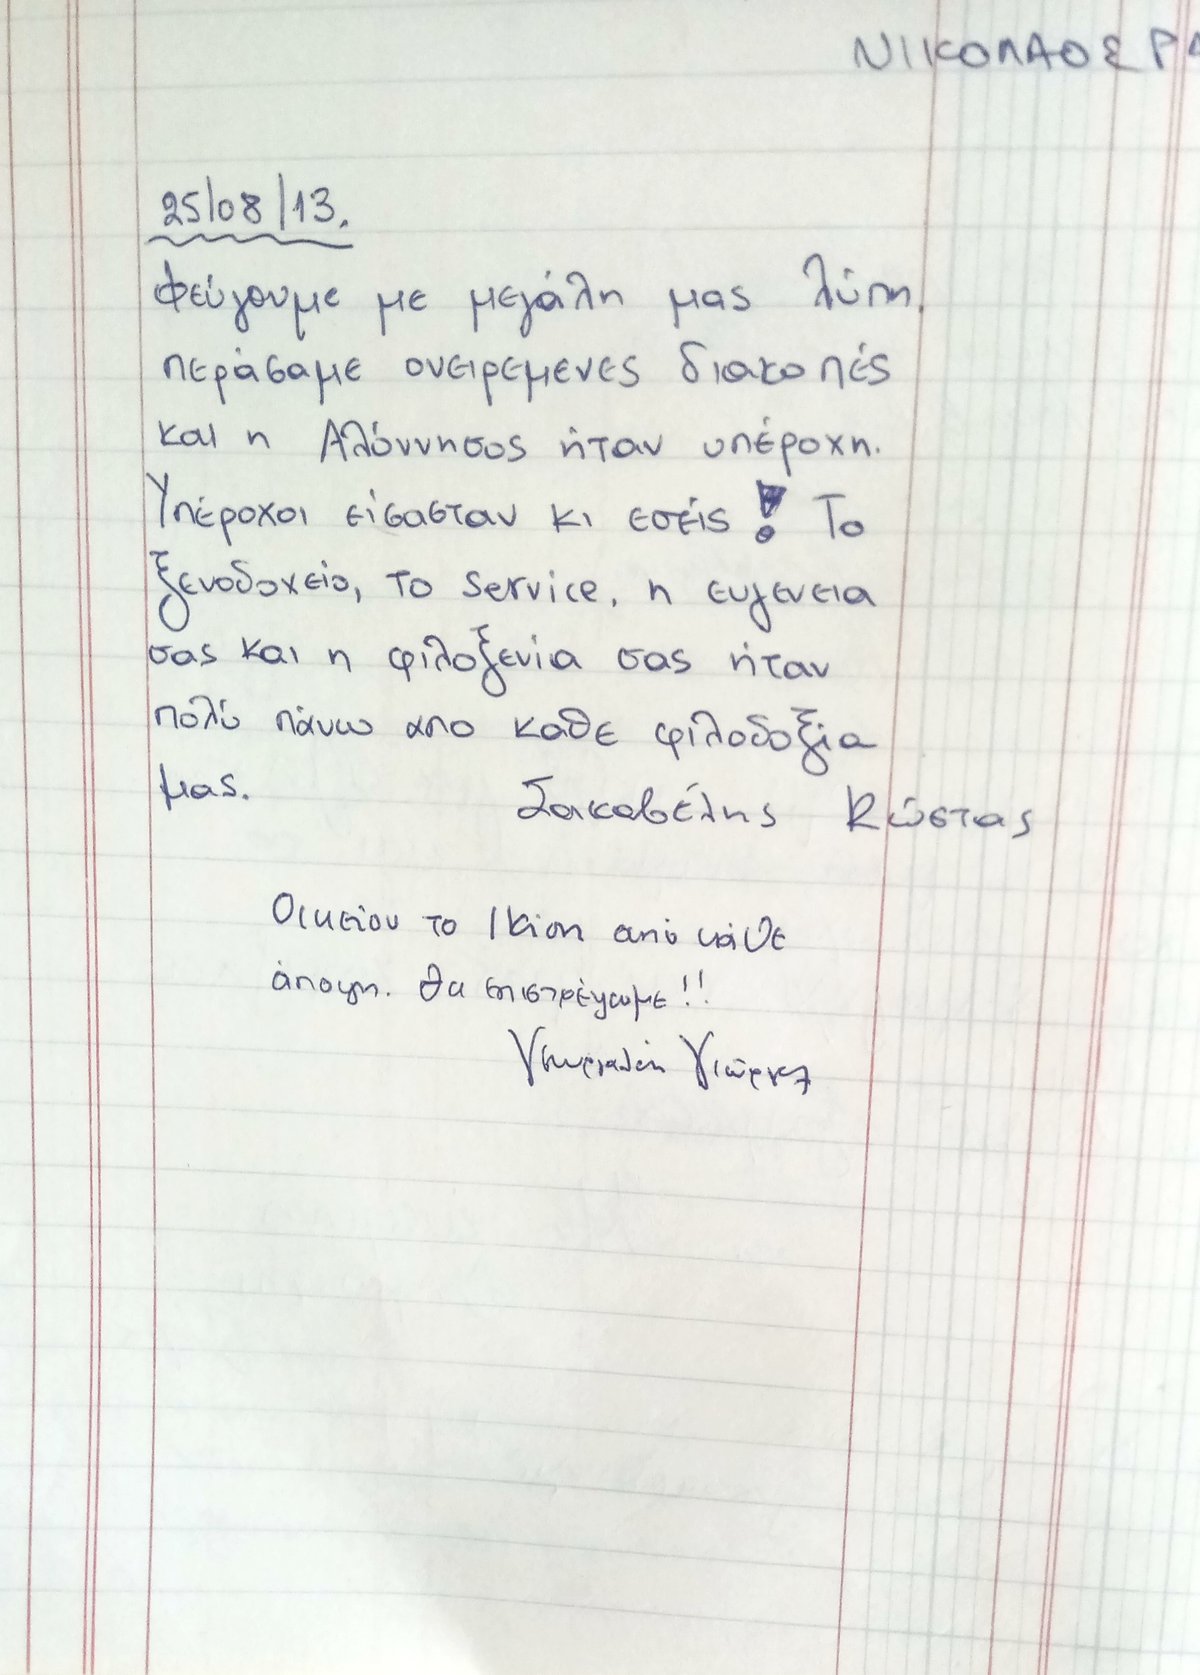 ΝΙΚΟΛΑΟΣ ΡΑ
25/08/13.
Φεύγουμε με μεγάλη μας λύπη.
περάσαμε ονειρεμενες διακοπές
και η Αλόννησος ήταν υπέροχη.
Υπέροχοι είσασταν κι εσείς! Το
ξενοδοχείο, το service, η ευγενεια
σας και η φιλοξενία σας ήταν
πολύ πάνω απο καθε φιλοδοξία
μας.
Σακαβέλης Κώστας
Οικείον το Ικίον από κάθε
άποψη. Θα επιστρέψουμε!!